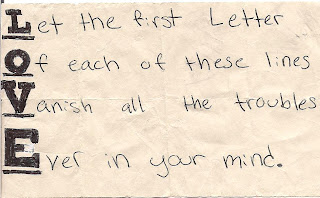 Let the first Letter
Of each of these lines
Vanish all the troubles
Ever in your mind.